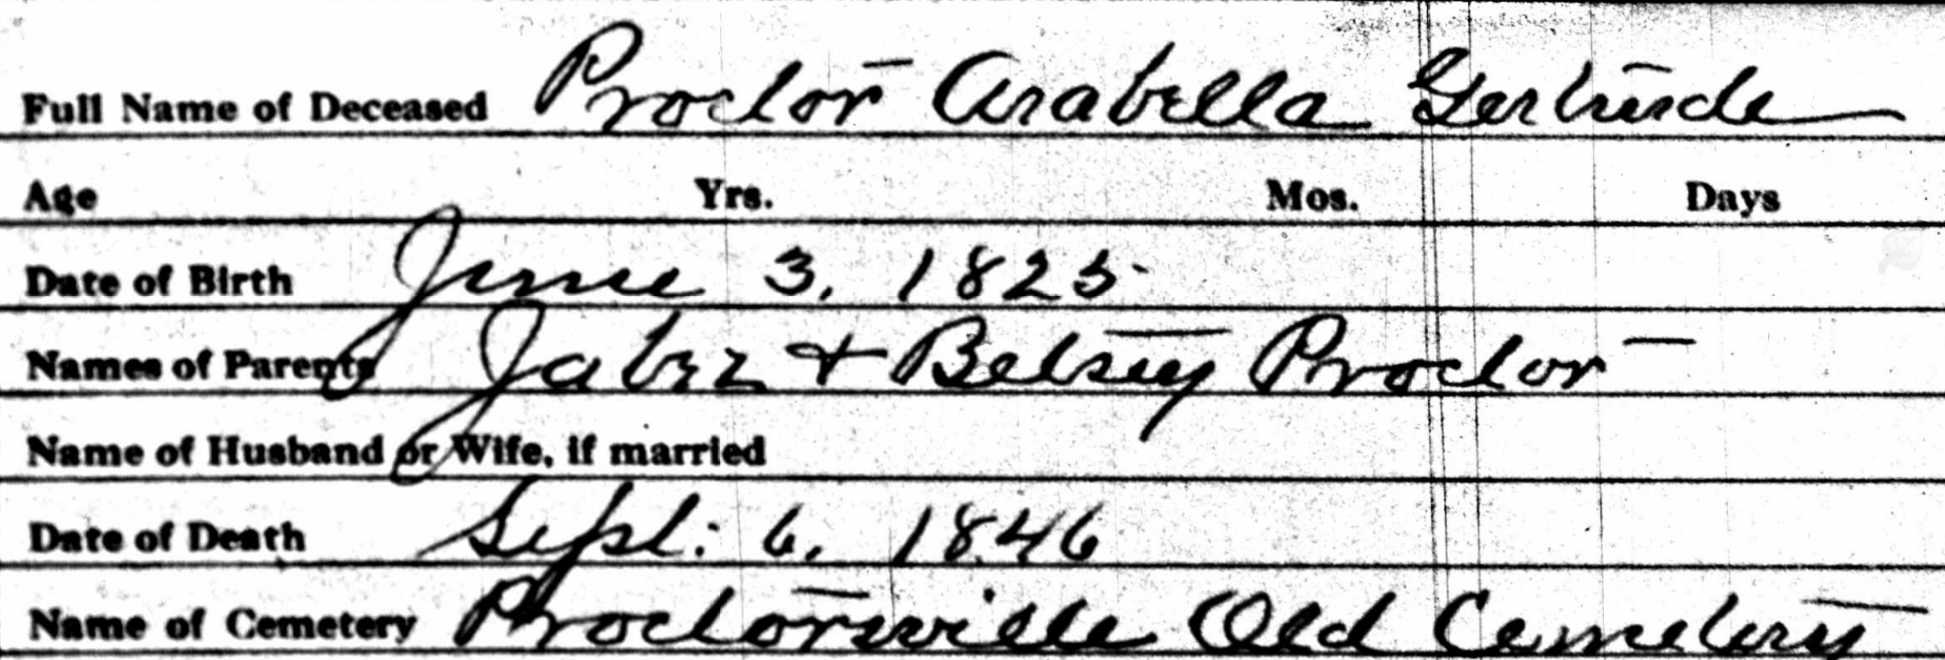 Full Name of Deceased Proctor Arabella Gertrude
Age Yrs. Mos. Days
Date of Birth June 3, 1825
Names of Parents Jabez + Betsey Proctor
Name of Husband or Wife, if married
Date of Death Sept: 6, 1846
Name of Cemetery Proctorsville Old Cemetery